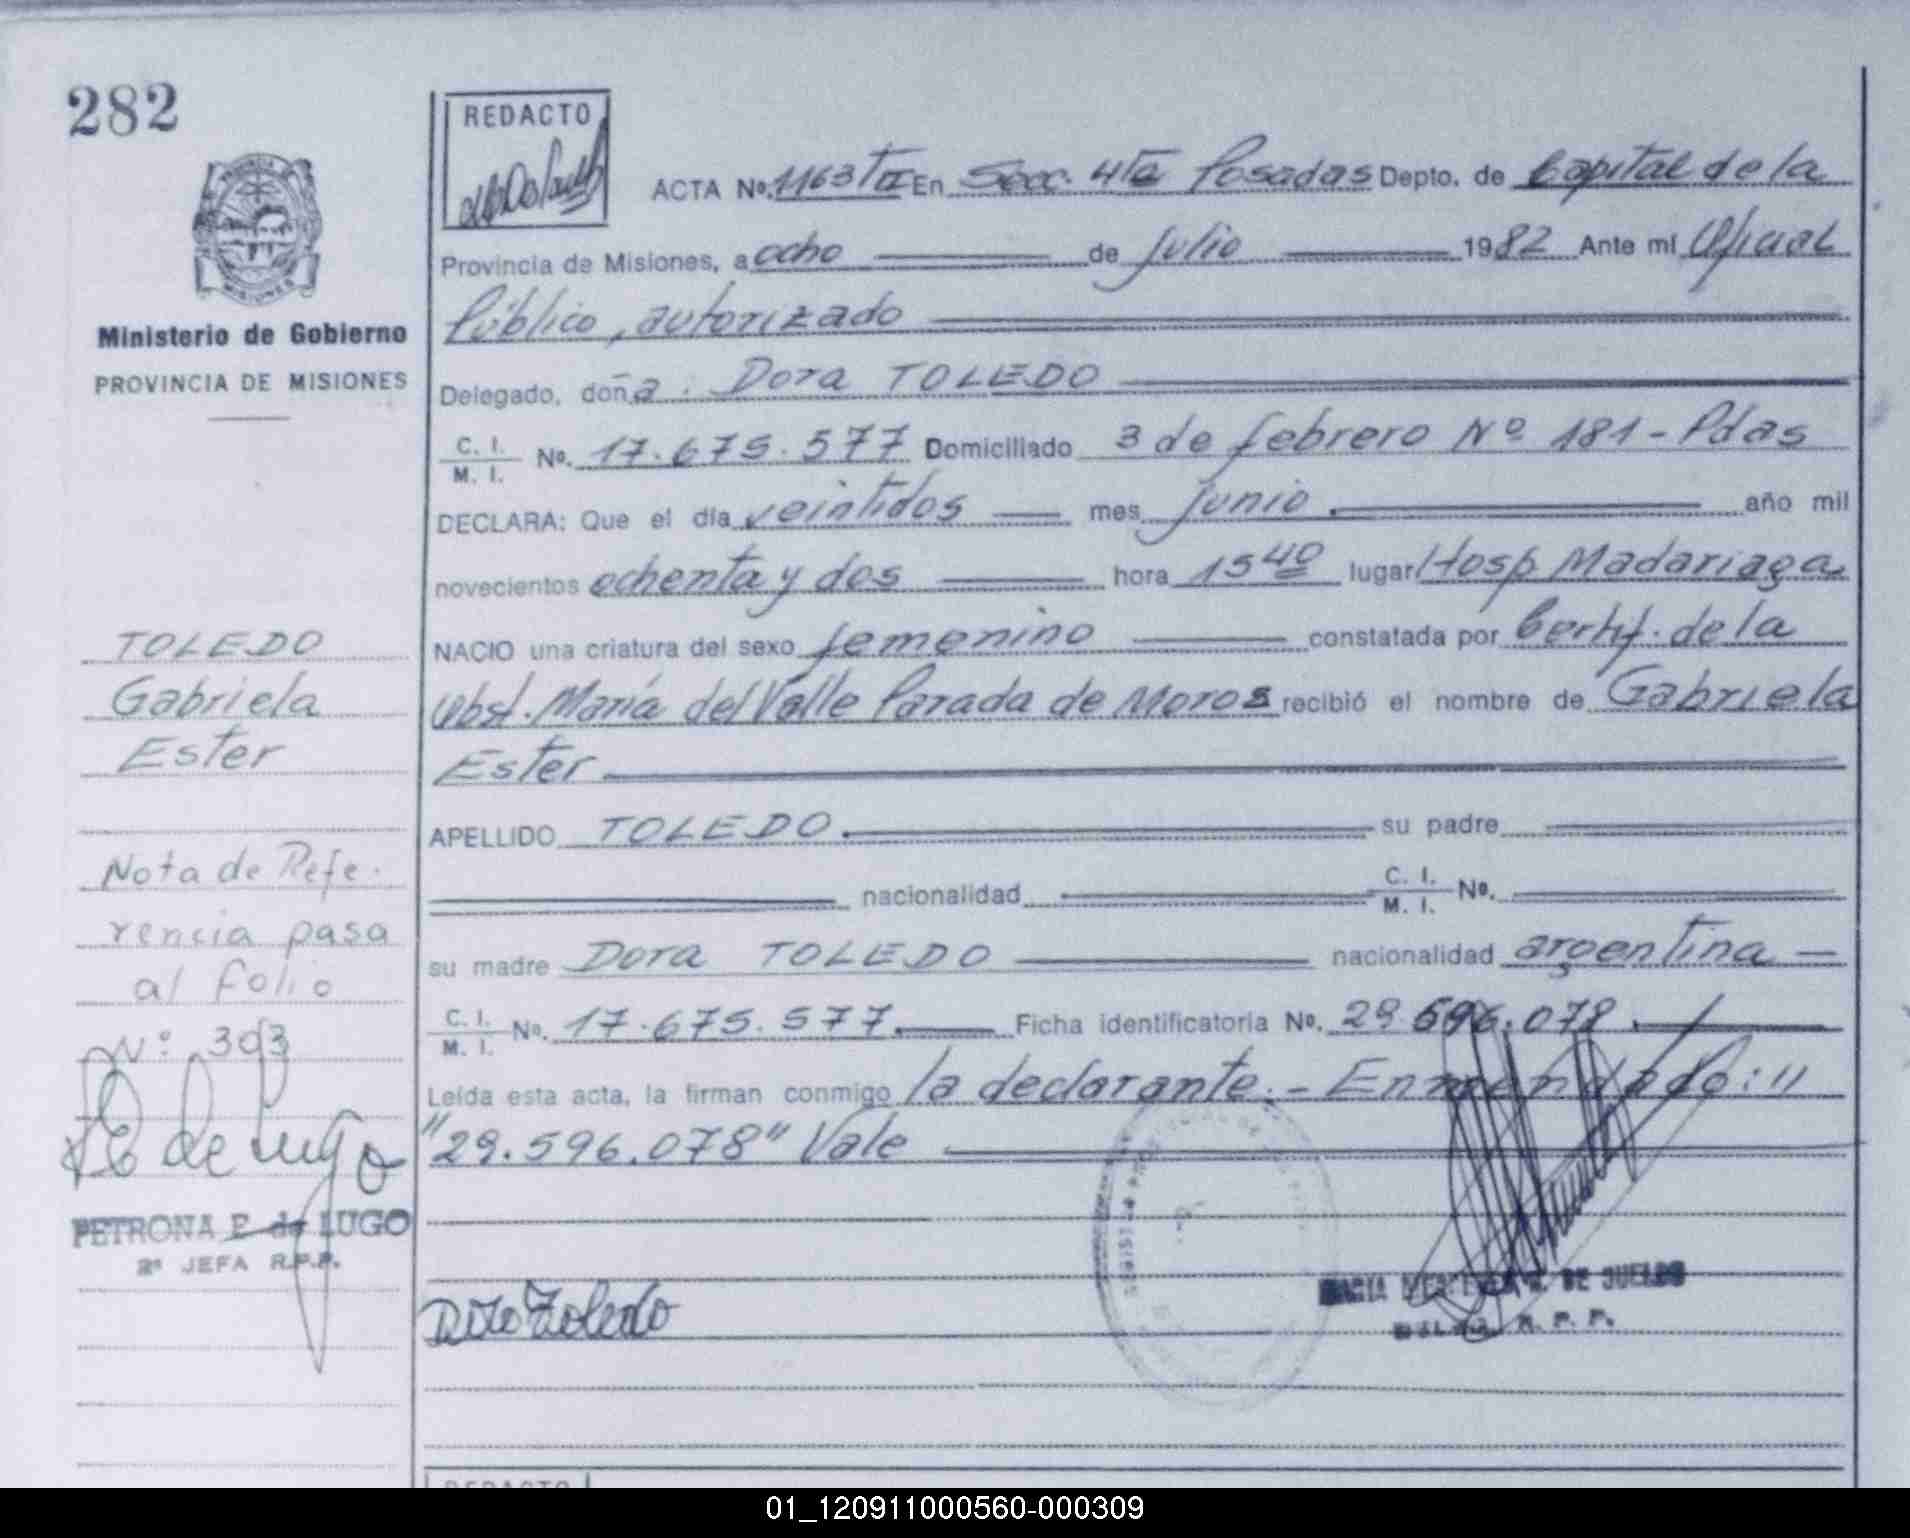 282
REDACTO
PROVINCIA DE
MISIONES
Ministerio de Gobierno
PROVINCIA DE MISIONES
ACTA Nº. 1163 TII En Secc. 4ta Posadas Depto. de Capital de la
Provincia de Misiones, a ocho de julio 1982 Ante mí Oficial
Público, autorizado
Delegado, doña. Dora TOLEDO
C. I.
M. I. Nº. 17.675.577 Domiciliado 3 de febrero Nº 181 - Pdas
DECLARA: Que el día veintidos mes junio año mil
novecientos ochenta y dos hora 15 40 lugar Hosp Madariaga
NACIO una criatura del sexo femenino constatada por Certif. de la
Obst. María del Valle Parada de Moros recibió el nombre de Gabriela
Ester
APELLIDO TOLEDO su padre
nacionalidad C. I.
M. I. Nº.
su madre Dora TOLEDO nacionalidad argentina
C. I.
M. I. Nº. 17.675.577 Ficha identificatoria Nº. 29.596.078
Leída esta acta, la firman conmigo la declarante. - Enmendado: "
"29.596.078" Vale
TOLEDO
Gabriela
Ester
Nota de Refe-
rencia pasa
al folio
Nº: 303
PE de Lugo
PETRONA E de LUGO
2ª JEFA R.P.P.
Dora Toledo
DE SUELDO
R. P. P.
REDACTO
01_120911000560-000309